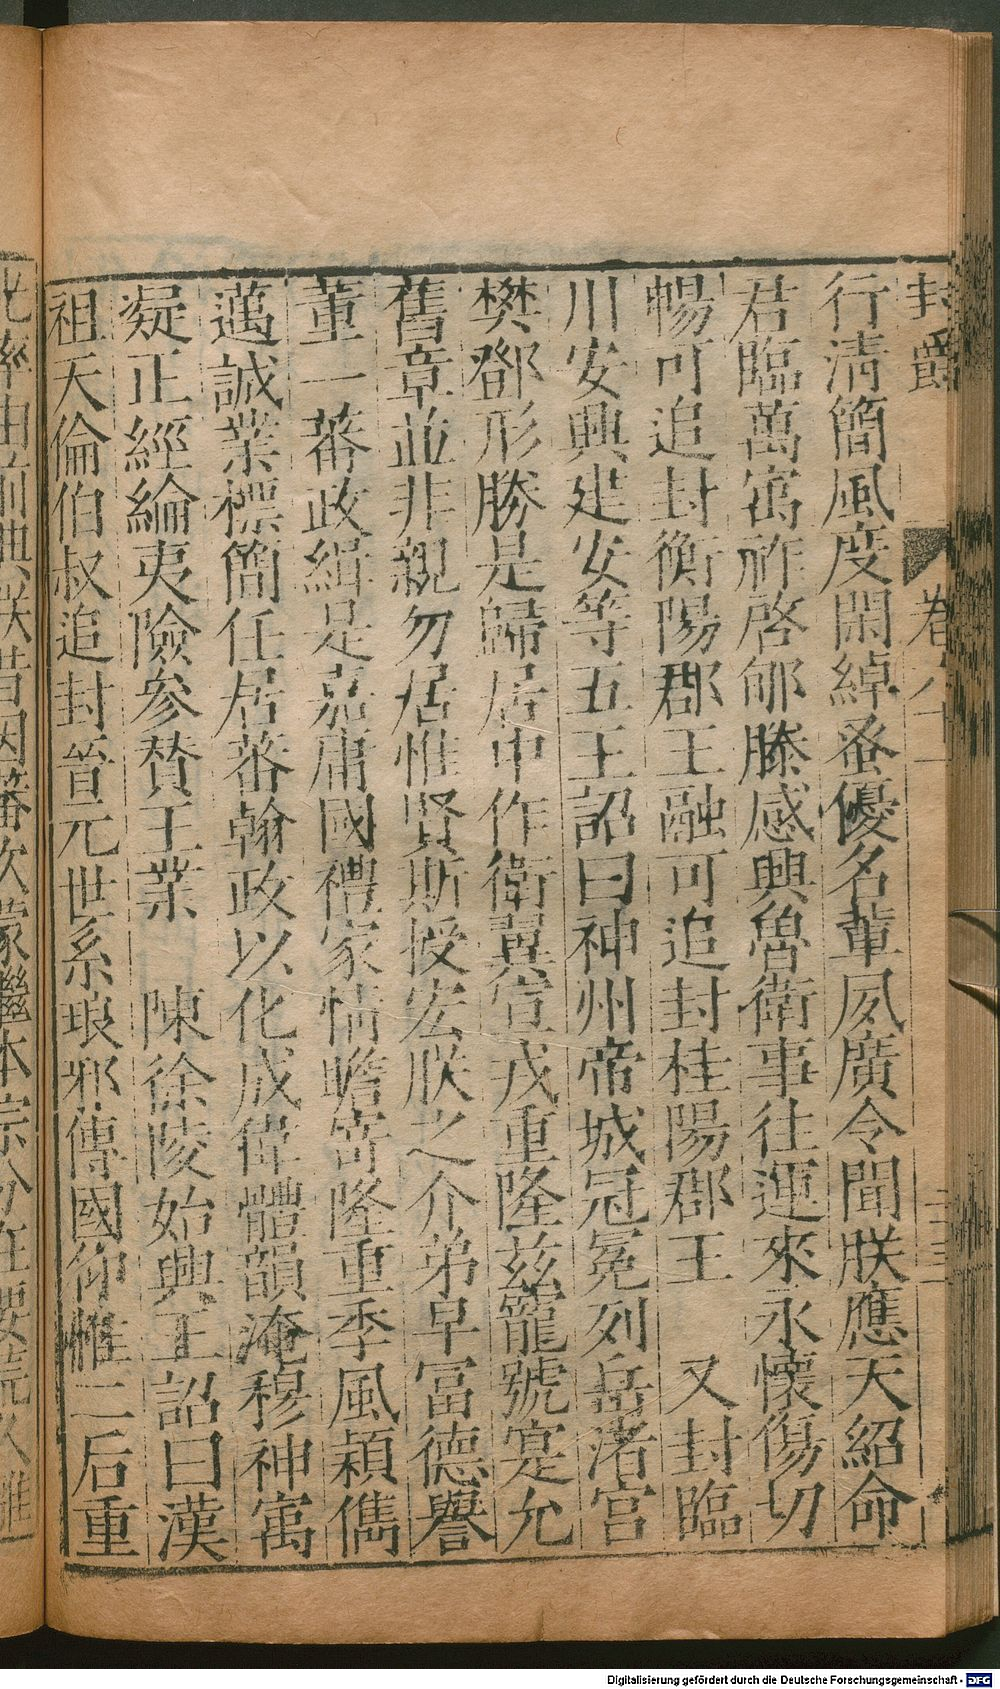 封爵 卷八十一 二三
行清簡風度閑綽蚤優名輩夙廣令聞朕應天紹命
君臨萬㝢祚啓邮滕感興魯衛事往運來永懷傷切
暢可追封衡陽郡王融可追封桂陽郡王 又封臨
川安興建安等五王詔曰神州帝城冠冕列岳渚宫
樊鄧形勝是歸居中作衛翼宣戎重隆茲寵號寔允
舊章並非親勿居惟賢斯授宏朕之介弟早富德譽
董一蕃政緝是嘉庸國禮家情瞻寄隆重季風穎儁
邁誠業標簡任居蕃翰政以化成偉體韻淹穆神㝢
凝正經綸夷險參贊王業 陳徐陵始興王詔曰漢
祖天倫伯叔追封晉元世系琅邪傳國仰惟二后重
由前典朕昔因蕃次蒙繼本宗分在要荒久離
Digitalisierung gefördert durch die Deutsche Forschungsgemeinschaft - DFG